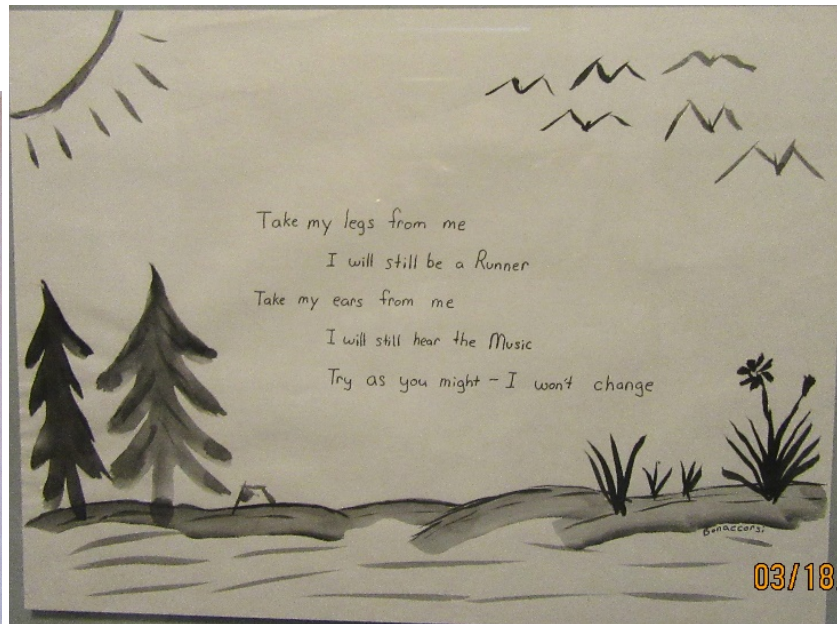 Take my legs from me
I will still be a Runner
Take my ears from me
I will still hear the Music
Try as you might – I won't change
Bonaccorsi
03/18